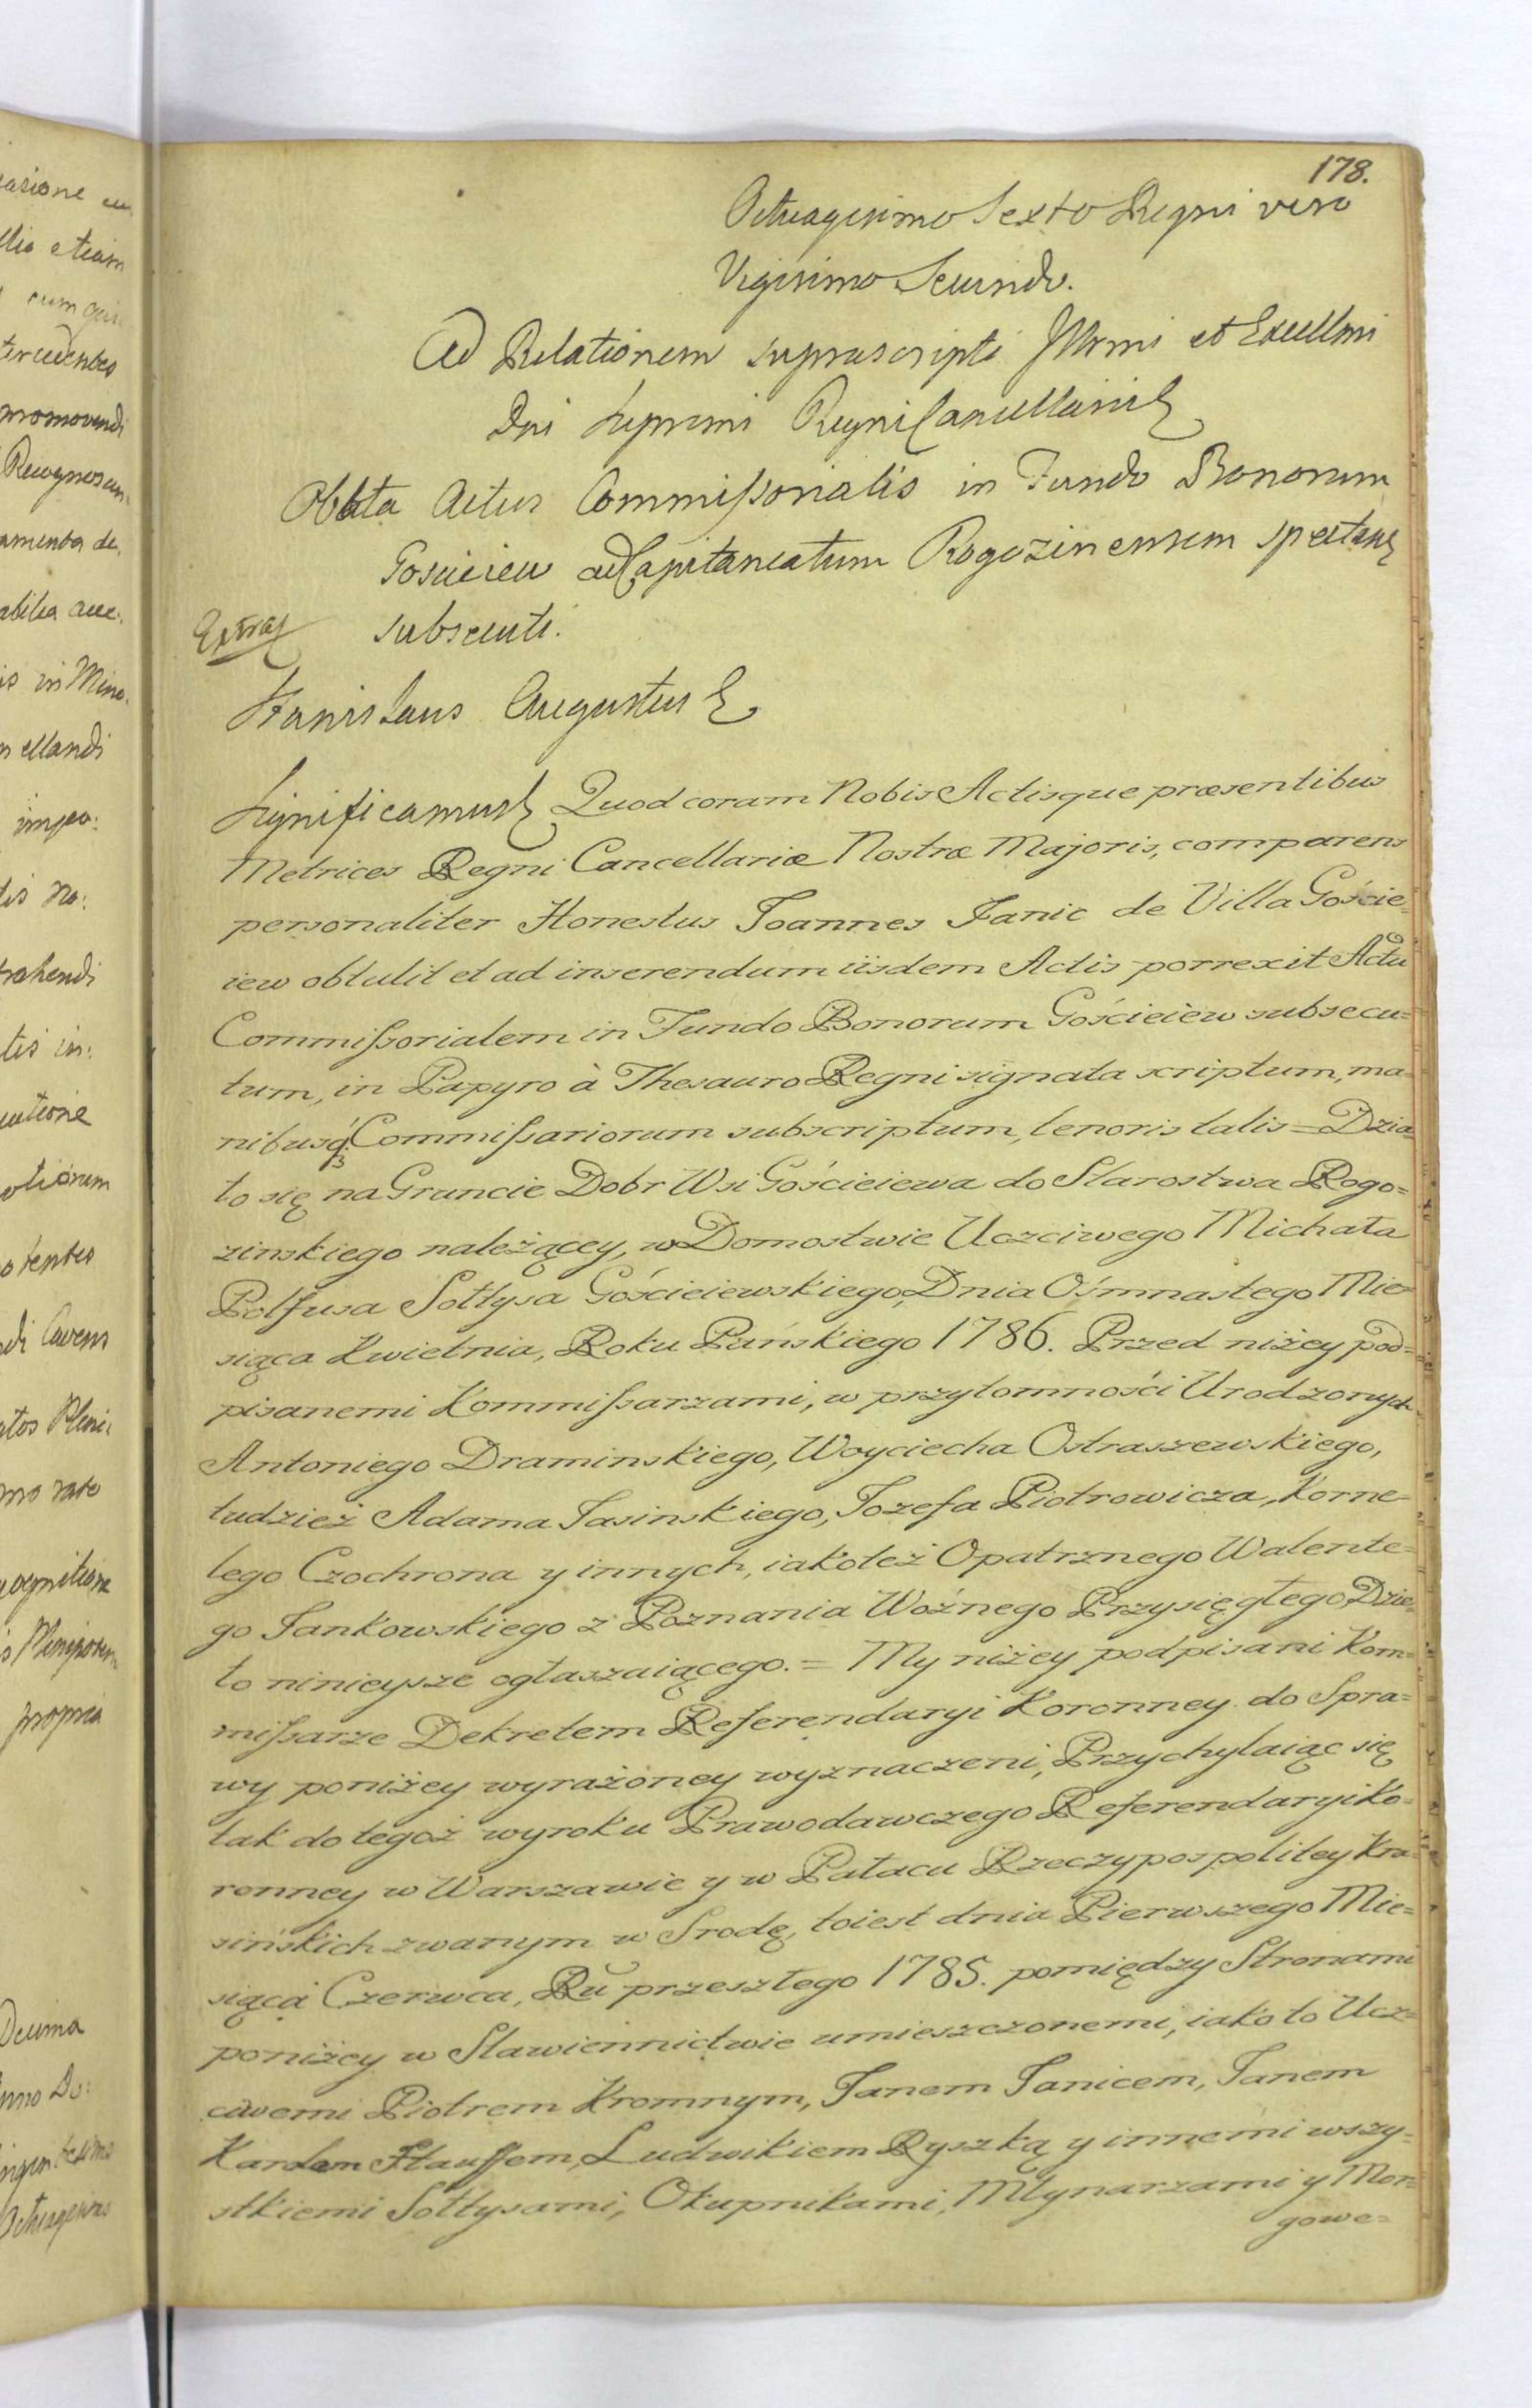 178.
Octuagesimo Sexto Regni vero
Vigesimo Secundo.
Ad Relationem suprascripti Illrmi et Excellmi
Dni Supremi Regni Cancellarii
Oblata Actus Commissorialis in Fundo Bonorum
Goscieiew ad Capitaneatum Rogozinensem spectans
Extrad subsecuti.
Stanislaus Augustus
Significamus Quod coram Nobis Actisque præsentibus
Metrices Regni Cancellariæ Nostræ Majoris, comparens
personaliter Honestus Joannes Janic de Villa Goście-
iew obtulit et ad inserendum iisdem Actis porrexit Actū
Commissorialem in Fundo Bonorum Gościeiew subsecu=
tum, in Papyro à Thesauro Regni signata scriptum, ma-
nibusq; Commissariorum subscriptum, tenoris talis = Dzia-
ło się na Gruncie Dobr Wsi Gościeiewa do Starostwa Rogo=
zinskiego należącey, w Domostwie Uczciwego Michała
Polfusa Sołtysa Gościeiewskiego, Dnia Ośmnastego Mie-
siąca Kwietnia, Roku Pańskiego 1786. Przed niżey pod=
pisanemi Kommissarzami, w przytomności Urodzonych
Antoniego Draminskiego, Woyciecha Ostraszewskiego,
tudzież Adama Jasinskiego, Jozefa Piotrowicza, Korne-
lego Czochrona y innych, iakoteż Opatrznego Walente-
go Jankowskiego z Poznania Woźnego Przysięgłego Dzie-
ło ninieysze ogłaszaiącego. = My niżey podpisani Kom=
missarze Dekretem Referendaryi Koronney do Spra=
wy poniżey wyrażoney wyznaczeni, Przychylaiąc się
tak do tegoż wyroku Prawodawczego Referendaryi Ko-
ronney w Warszawie y w Pałacu Rzeczypospolitey Kra-
sińskich zwanym w Srodę, toiest dnia Pierwszego Mie=
siąca Czerwca, Rū przeszłego 1785. pomiędzy Stronami
poniżey w Stawiennictwie umieszczonemi, iako to Ucz=
ciwemi Piotrem Kromnym, Janem Janicem, Janem
Karolem Stauffem, Ludwikiem Ryszką y innemi wszy=
stkiemi Sołtysami, Okupnikami, Młynarzami y Mor=
gowe=